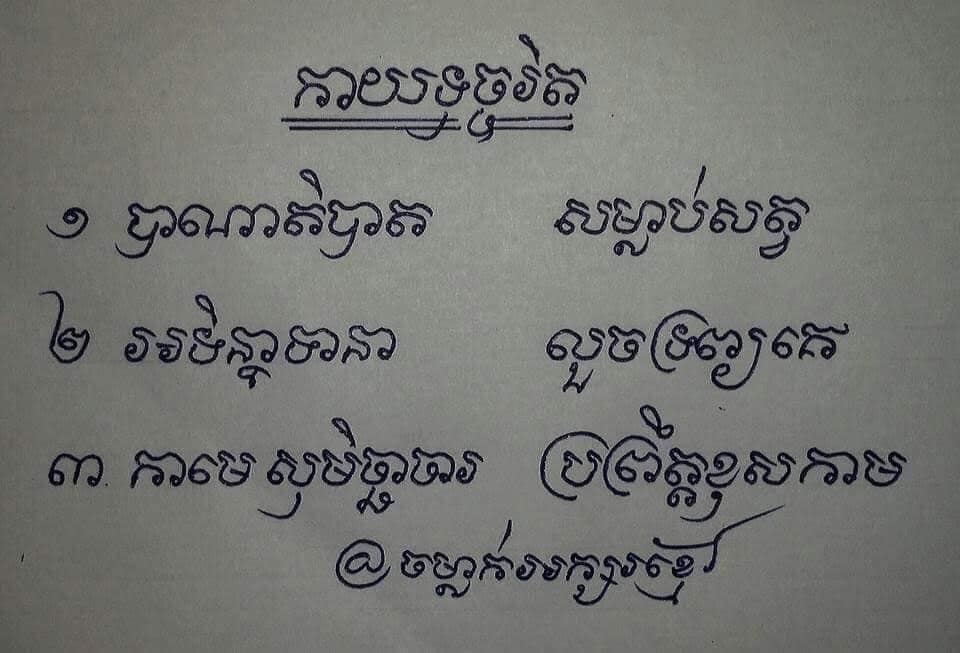 កាយទុច្ចរិត
១ បាណាតិបាត សម្លាប់សត្វ
២ អទិន្នាទានា លួចទ្រព្យគេ
៣. កាមេសុមិច្ឆាចារ ប្រព្រឹត្តខុសកាម
@ ចម្លាក់អក្សរខ្មែរ